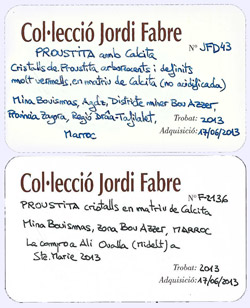 Col·lecció Jordi Fabre
Nº JFD43
PROUSTITA amb Calcita
Cristalls de Proustita arborescents i definits
molt vermells, en matriu de Calcita (no acidificada)
Mina Bouismas, Agdz, Districte miner Bou Azzer,
Província Zagora, Regió Drâa-Tafilalet,
Marroc
Trobat: 2013
Adquisició: 17/06/2013
Col·lecció Jordi Fabre
Nº F-2136
PROUSTITA cristalls en matriu de Calcita
Mina Bouismas, zona Bou Azzer, MARROC
La compro a Ali Oualla (Midelt) a
Ste. Marie 2013
Trobat: 2013
Adquisició: 17/06/2013